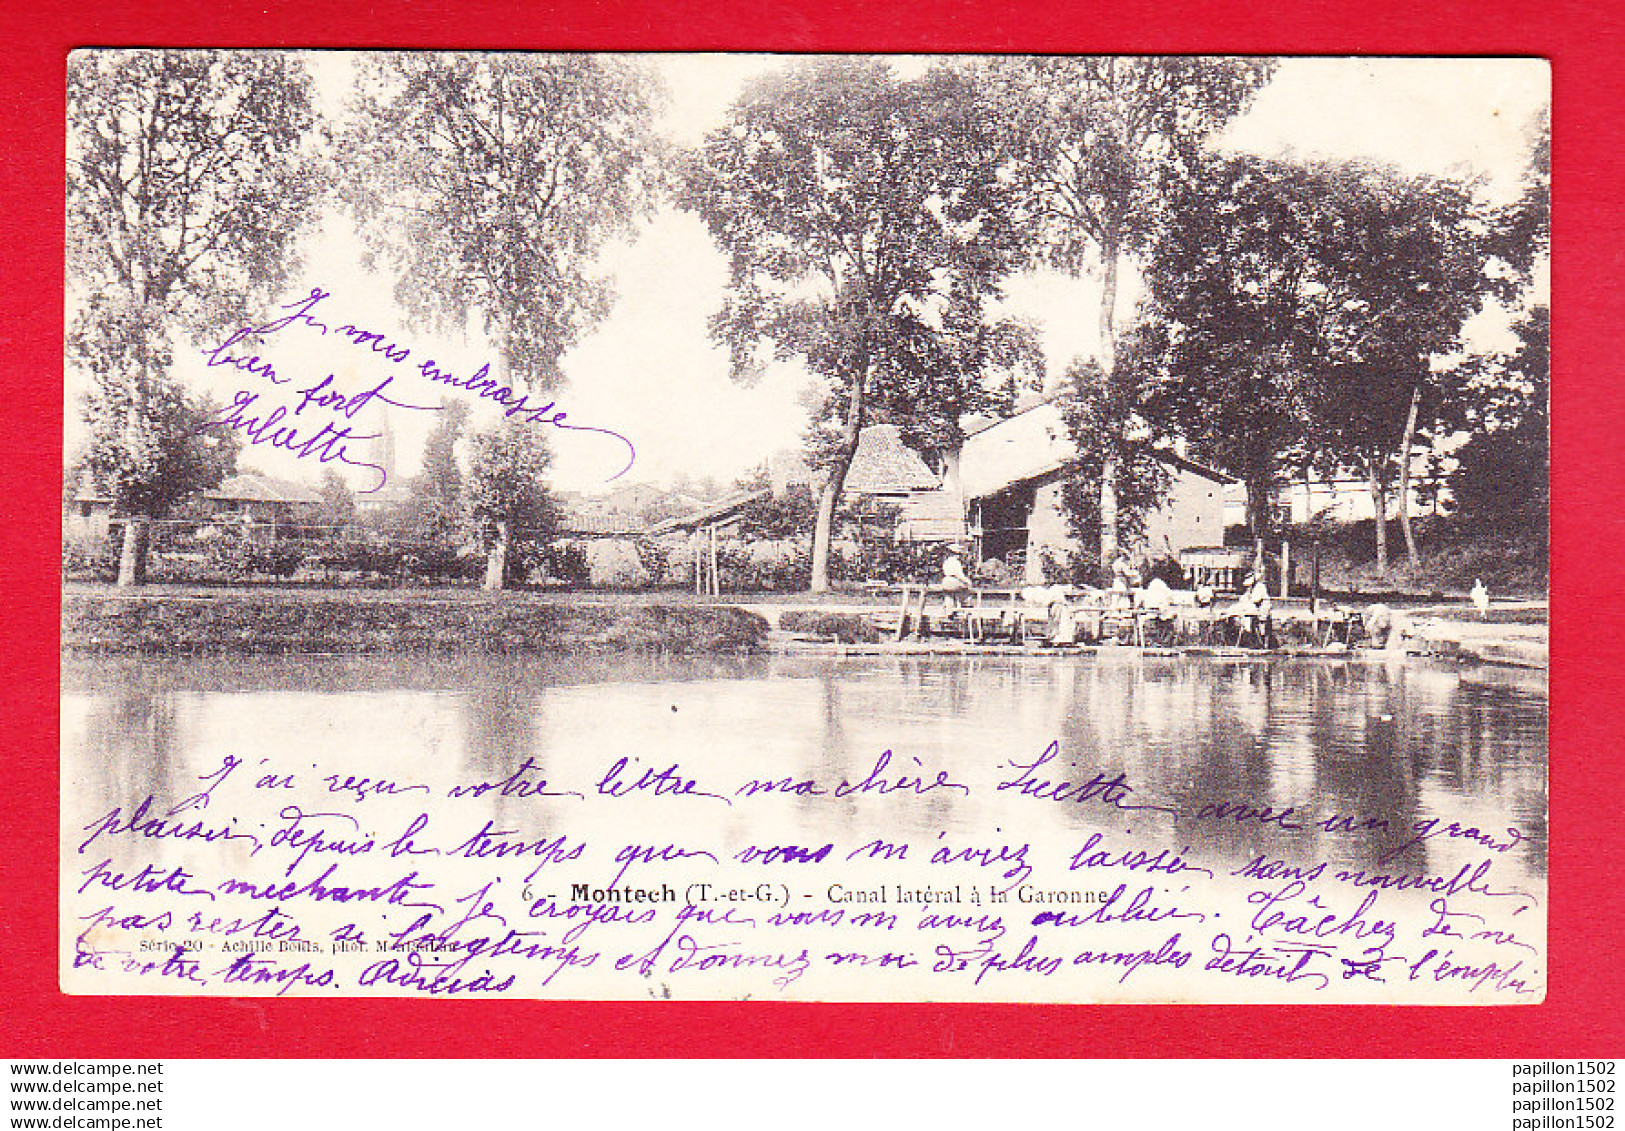 Je vous embrasse
bien fort
Juliette
J'ai reçu votre lettre ma chère Lucette avec un grand
plaisir, depuis le temps que vous m'aviez laissée sans nouvelle
petite méchante je croyais que vous m'aviez oublié. Tâchez de ne
6 - Montech (T.-et-G.) - Canal latéral à la Garonne
pas rester si longtemps et donnez moi de plus amples détails de l'emploi
Série 20 - Achille Bouis, phot. Montauban
de votre temps.
www.delcampe.net papillon1502
www.delcampe.net papillon1502
www.delcampe.net papillon1502
www.delcampe.net papillon1502